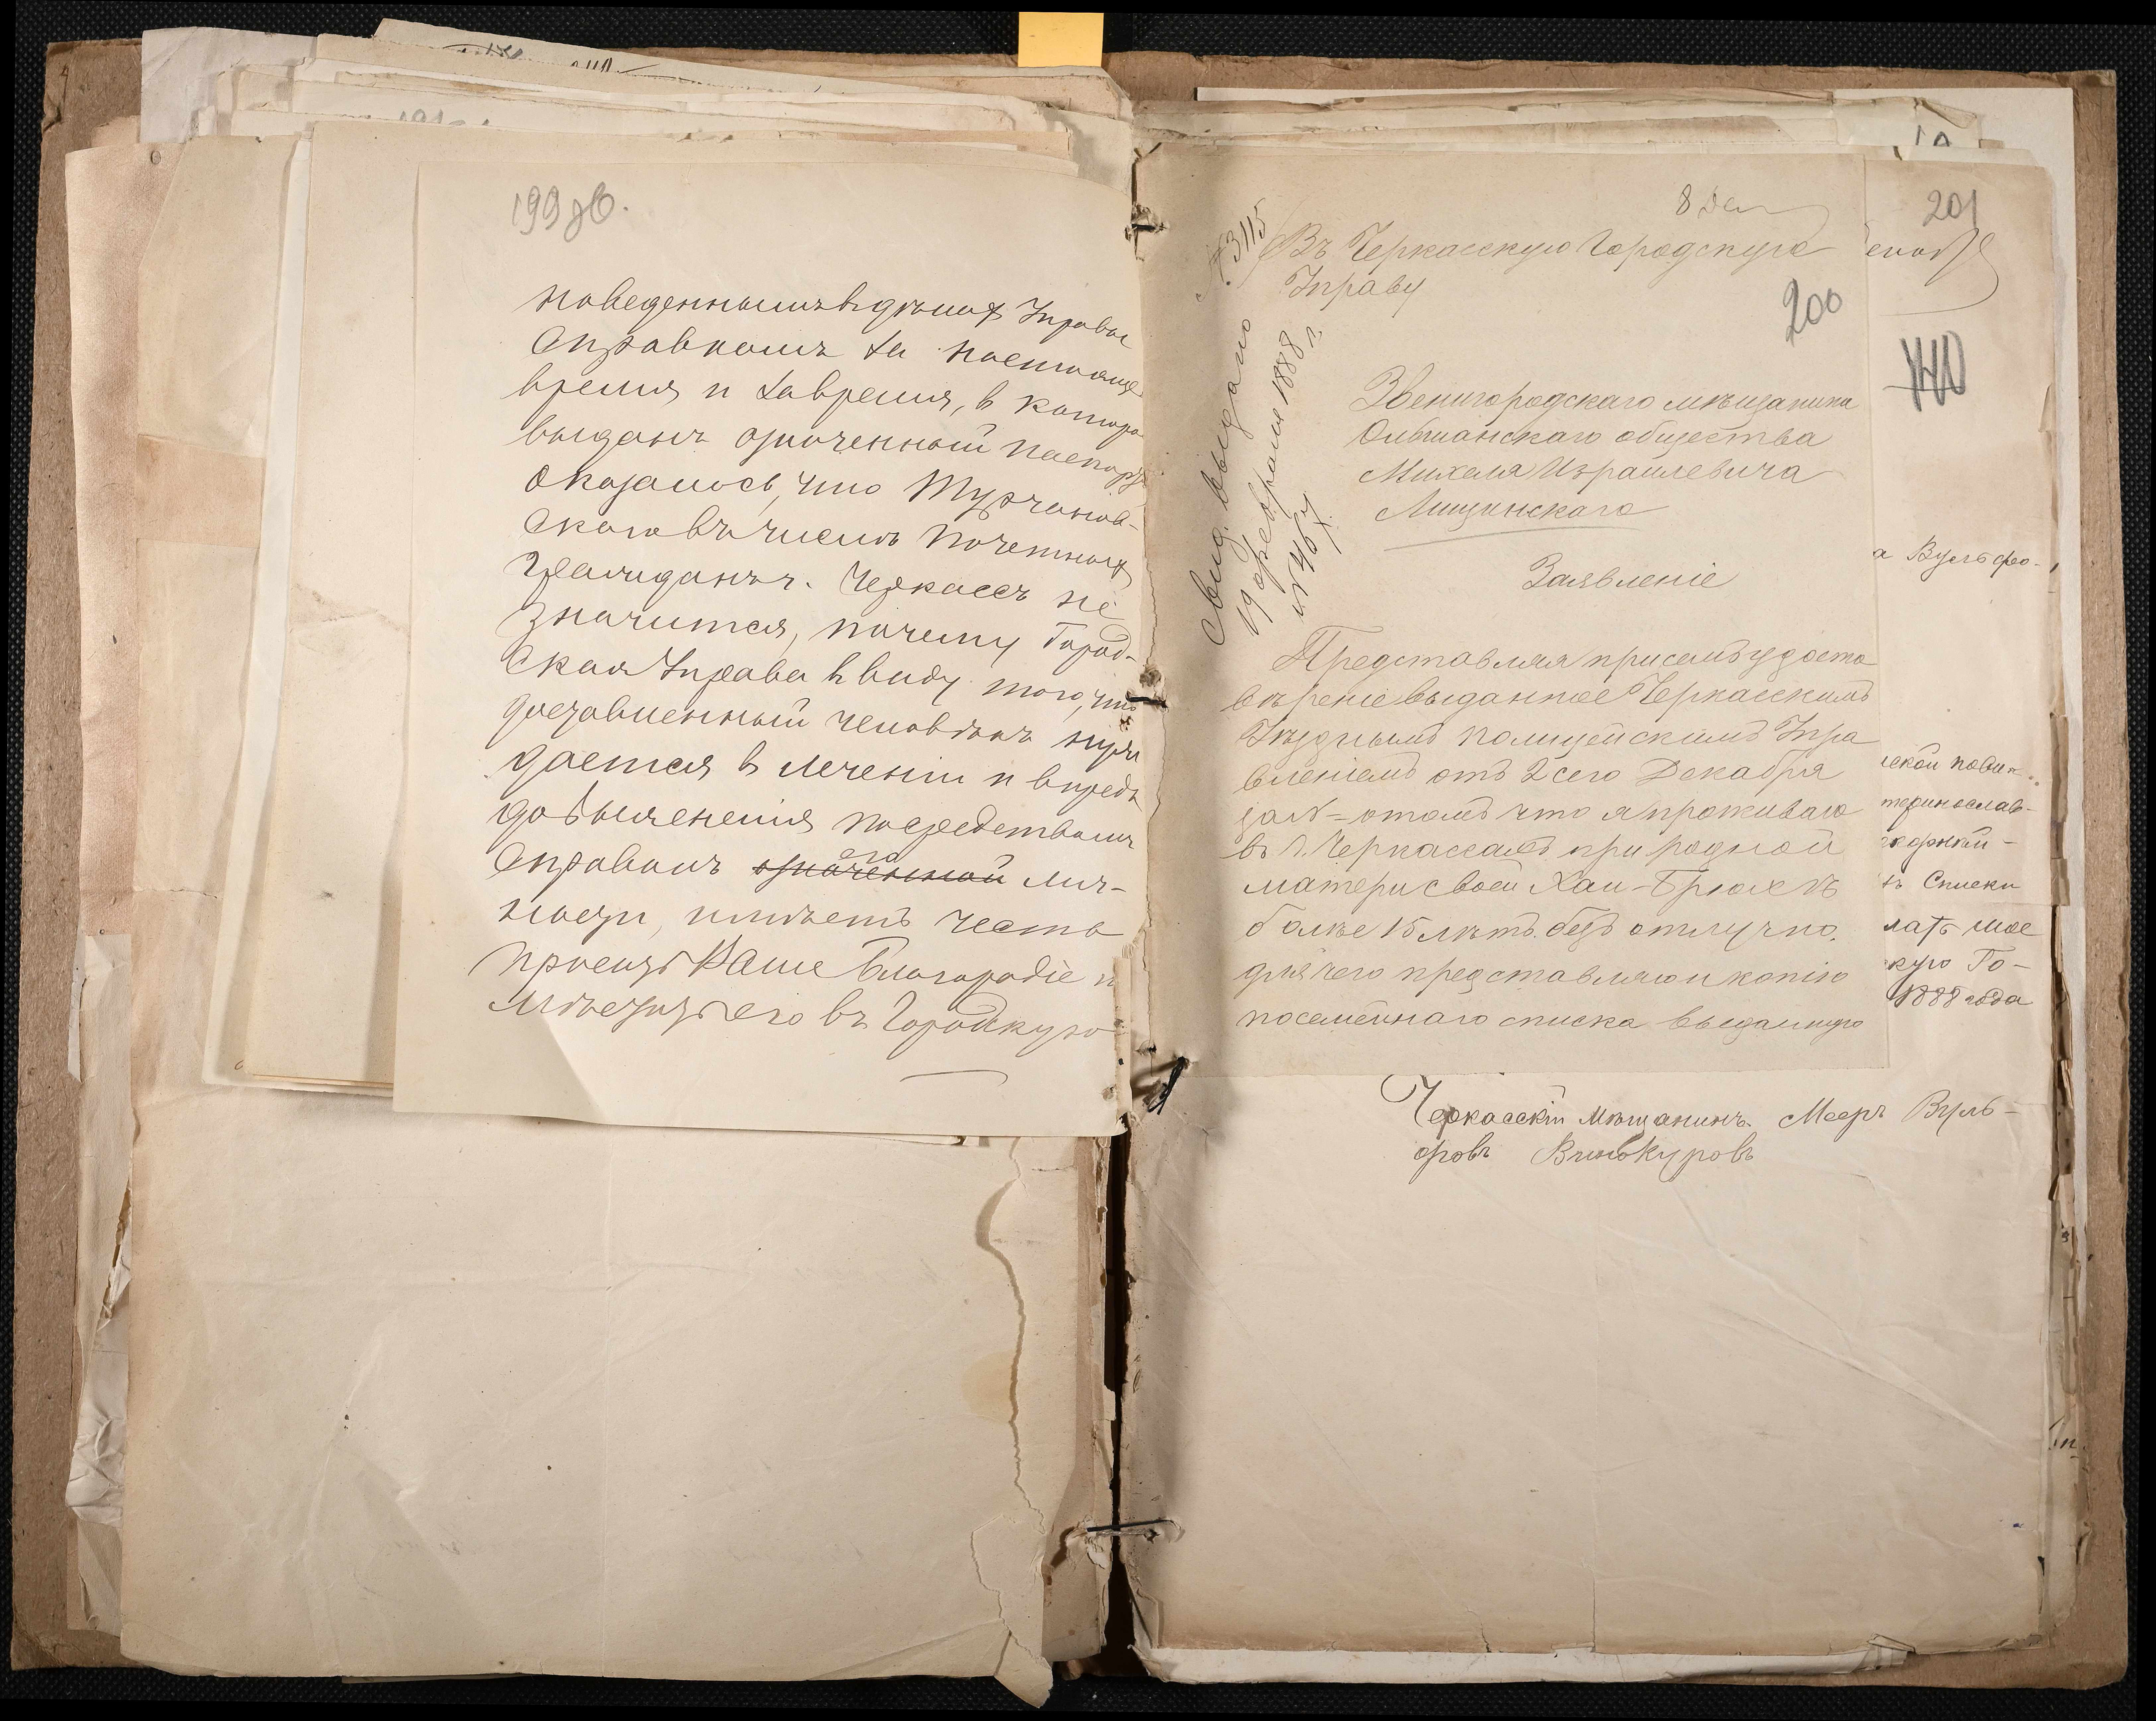 199 об.
наведенными въ дѣлах Управы
справкамъ за настояще
время и за время, в которо
выданъ означенный паспорт
оказалось, что Турчанов-
скаго въ числѣ почетных
гражданъ г. Черкассъ не
значится, почему Город-
ская Управа в виду того, что
доставленный человѣкъ нуж
дается в лечении и впредь
до выясненія посредствомъ
справокъ означенной его лич-
ности, имѣетъ честь
просить Ваше Благородіе п
мѣстить его въ Городскую
8 Дек
№ 3115
Въ Черкасскую Городскую
Управу
200
Звенигородскаго мѣщанина
Ольшанскаго общества
Михеля Израилевича
Лищинскаго
Заявленіе
Свид. выдано
19 февраля 1888 г.
№ 467
Представляя присемъ удосто
вѣреніе выданное Черкасскимъ
Уѣзднымъ Полицейскимъ Упра
вленіемъ отъ 2 сего Декабря
за № = отомъ что я проживаю
въ г. Черкассахъ при родной
матери своей Хаи-Брюхѣ
болѣе 15 лѣтъ безъ отлучно.
для чего представляю и копію
посемейнаго списка выданную
201
140
а Вульфо-
ской повин-
теринослав-
ъ Списки
латъ мое
скую Го-
1888 года
Черкасскій Мѣщанинъ Мееръ Вуль-
фовъ Винокуровъ